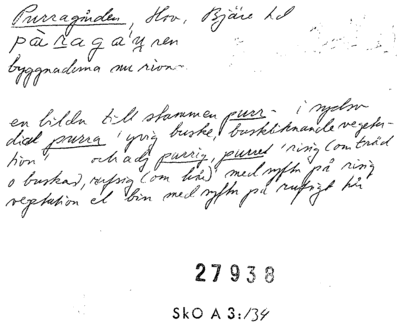 Purragården, Hov, Bjäre hd
pàragáɳen
byggnaderna nu rivn-
en bildn till stammen purr- i sydsv
dial purra 'yvig buske, buskliknande vegeta-
tion' och adj purrig, purret 'risig (om träd
o buskar), rufsig (om hår)' med syftn på risig
vegetation el bin med syftn på rufsigt hår
27938
SkO A 3:134